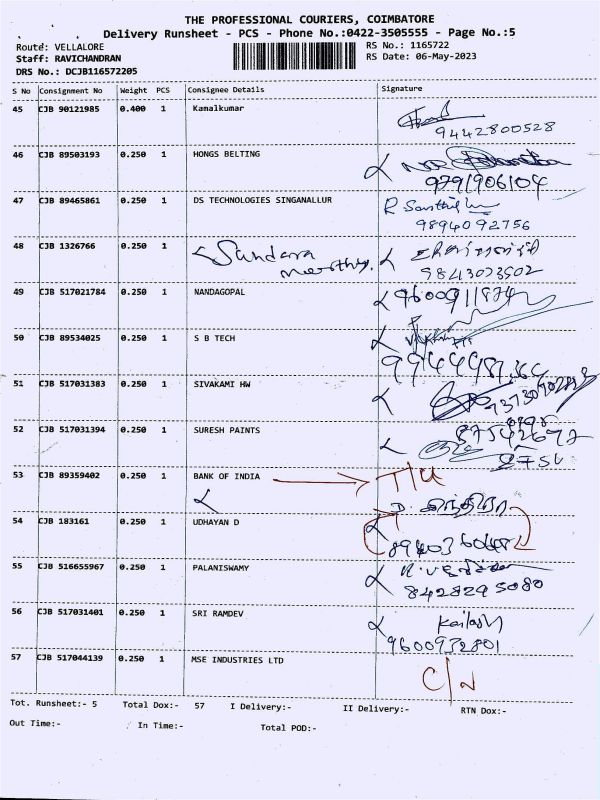 THE PROFESSIONAL COURIERS, COIMBATORE
Delivery Runsheet - PCS - Phone No.:0422-3505555 - Page No.:5
Route: VELLALORE RS No.: 1165722
Staff: RAVICHANDRAN RS Date: 06-May-2023
DRS No.: DCJB116572205
S No Consignment No Weight PCS Consignee Details Signature
45 CJB 90121985 0.400 1 Kamalkumar
9442800528
46 CJB 89503193 0.250 1 HONGS BELTING
9791906104
47 CJB 89465861 0.250 1 DS TECHNOLOGIES SINGANALLUR
9894092756
48 CJB 1326766 0.250 1 Sundara
9843073502
49 CJB 517021784 0.250 1 NANDAGOPAL
50 CJB 89534025 0.250 1 S B TECH
51 CJB 517031383 0.250 1 SIVAKAMI HW
52 CJB 517031394 0.250 1 SURESH PAINTS
53 CJB 89359402 0.250 1 BANK OF INDIA
54 CJB 183161 0.250 1 UDHAYAN D
55 CJB 516655967 0.250 1 PALANISWAMY
8428295080
56 CJB 517031401 0.250 1 SRI RAMDEV Kailash
9600932801
57 CJB 517044139 0.250 1 MSE INDUSTRIES LTD C/N
Tot. Runsheet:- 5 Total Dox:- 57 I Delivery:- II Delivery:- RTN Dox:-
Out Time:- In Time:- Total POD:-